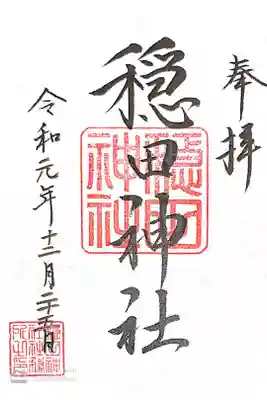 奉拝
穏田神社
穏田神社
令和元年十二月二十五日